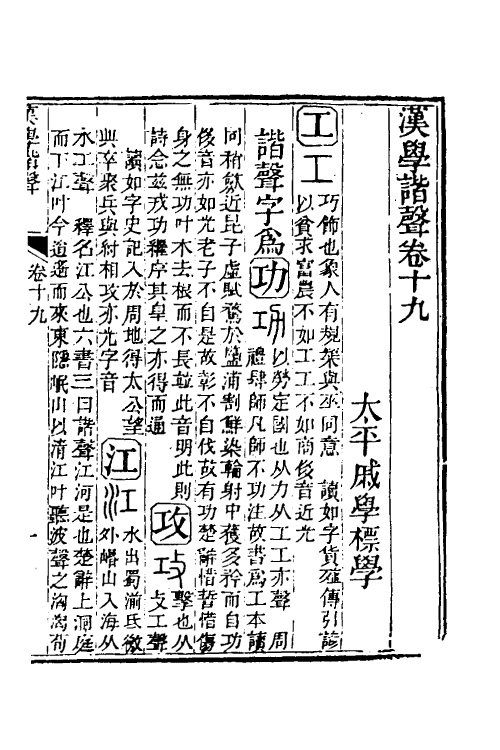 漢學諧聲卷十九
太平戚學標學
工 工 巧飾也象人有規榘與巫同意 讀如字貨殖傳引諺
以貧求富農不如工工不如商俊音近光
諧聲字爲 功 功 以勞定國也从力从工工亦聲 周
禮肆師凡師不功注故書爲工本讀
同 近昆子虛賦騖於鹽浦割鮮染輪射中獲多矜而自功
俊音亦如光老子不自是故彰不自伐故有功楚辭惜誓惜傷
身之無功叶木去根而不長竝此音明此則 攻 攻 擊也从
詩念茲戎功繼序其皇之亦得而通 攴工聲
讀如字史記入於周地得太公望
與卒聚兵與紂相攻亦光字音 江 江 水出蜀湔氐徼
外嶓山入海从
水工聲 釋名江公也六書三曰諧聲江河是也楚辭上洞庭
而下江叶今逍遙而來東隱岷山以清江叶聽波聲之洶洶荀
漢學諧聲 卷十九 一